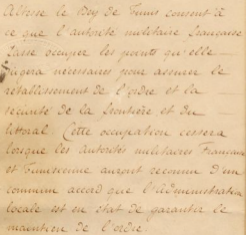 Altesse le Bey de Tunis consent à
ce que l'autorité militaire française
fasse occuper les points qu'elle
jugera nécessaires pour assurer le
rétablissement de l'ordre et la
sécurité de la frontière et du
littoral. Cette occupation cessera
lorsque les autorités militaires Françaises
et Tunisienne auront reconnu d'un
commun accord que l'administration
locale est en état de garantir le
maintien de l'ordre.